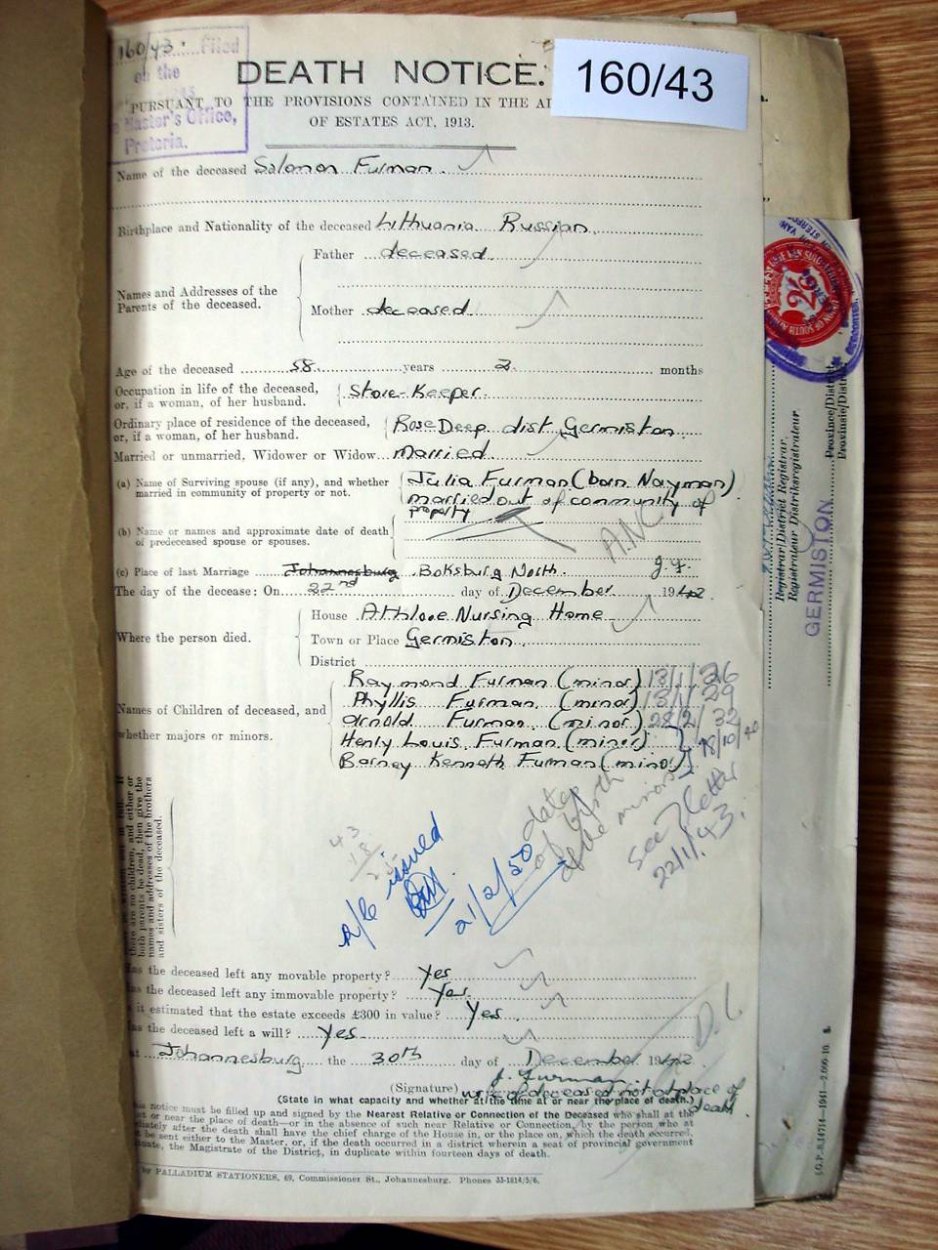 160/43. Filed
on the
Master's Office,
Pretoria.
DEATH NOTICE.
160/43
PURSUANT TO THE PROVISIONS CONTAINED IN THE
OF ESTATES ACT, 1913.
Name of the deceased Salomon Furman
Birthplace and Nationality of the deceased Lithuania Russian
Names and Addresses of the Parents of the deceased.
Father deceased
Mother deceased
Age of the deceased 58 years 2 months
Occupation in life of the deceased,
or, if a woman, of her husband. Store-Keeper
Ordinary place of residence of the deceased,
or, if a woman, of her husband. Rose Deep dist Germiston
Married or unmarried, Widower or Widow married
(a) Name of Surviving spouse (if any), and whether
married in community of property or not.
Julia Furman (born Nayman)
married out of community of
property
A.N.C.
(b) Name or names and approximate date of death
of predeceased spouse or spouses.
(c) Place of last Marriage Johannesburg Boksburg North. J.F.
The day of the decease: On 22nd day of December 1942
Where the person died.
House Athlone Nursing Home
Town or Place Germiston
District
Names of Children of deceased, and
whether majors or minors.
Raymond Furman (minor) 13/1/26
Phyllis Furman (minor) 13/1/29
Arnold Furman (minor) 28/2/32
Henly Louis Furman (minor)
Barney Kenneth Furman (minor)
18/10/40
dates
of birth
of the minors
see letter
22/11/43.
a/c issued
21/2/50
there are no children, and either or
both parents be dead, then give the
names and addresses of the brothers
and sisters of the deceased.
Has the deceased left any movable property? Yes
Has the deceased left any immovable property? Yes
Is it estimated that the estate exceeds £300 in value? Yes
Has the deceased left a will? Yes
At Johannesburg the 30th day of December 1942
(Signature) J. Furman
wife of deceased not at place of
death
(State in what capacity and whether at the time at or near the place of death.)
notice must be filled up and signed by the Nearest Relative or Connection of the Deceased who shall at the
or near the place of death—or in the absence of such near Relative or Connection, by the person who at
after the death shall have the chief charge of the House in, or the place on, which the death occurred,
be sent either to the Master, or, if the death occurred in a district wherein a seat of provincial government
the Magistrate of the District, in duplicate within fourteen days of death.
PALLADIUM STATIONERS, 69, Commissioner St., Johannesburg. Phones 33-1814/5/6.
Registrar/District Registrar.
Registrateur/Distriksregistrateur.
GERMISTON
Province/District
Provinsie/Distrik